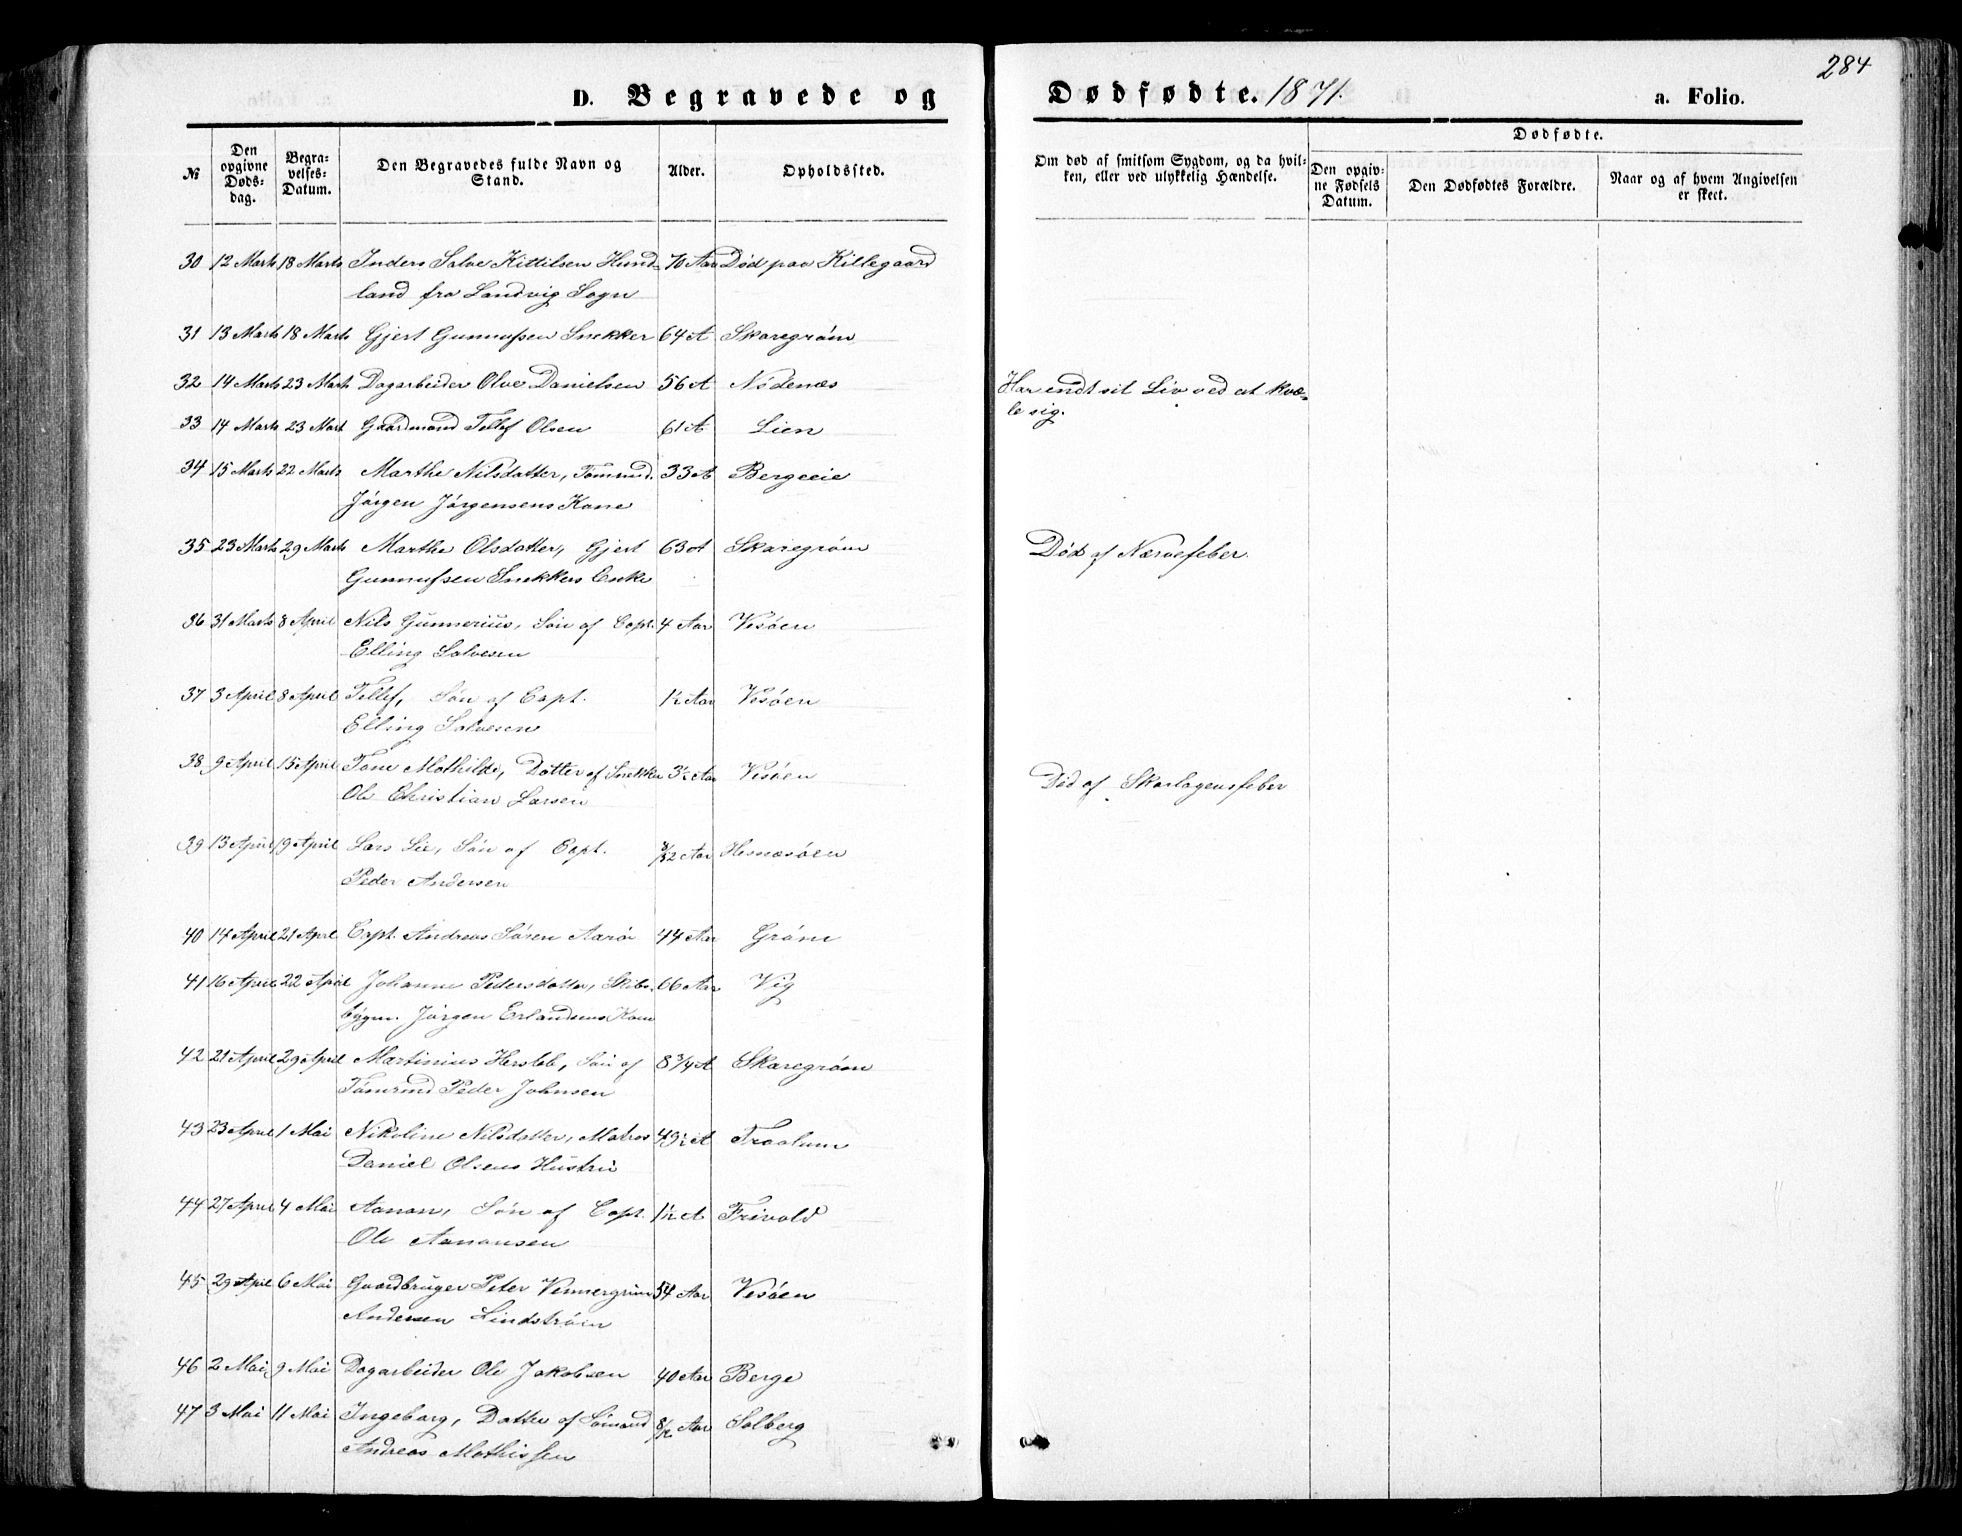 284
D. Begravede og Dødfødte. 1871. a. Folio.
№
Den opgivne Døds-dag.
Begra-velses-Datum.
Den Begravedes fulde Navn og Stand.
Alder.
Opholdssted.
Om død af smitsom Sygdom, og da hvil-ken, eller ved ulykkelig Hændelse.
Dødfødte.
Den opgiv-ne Fødsels Datum.
Den Dødfødtes Forældre.
Naar og af hvem Angivelsen er skeet.
30 12 Marts 18 Marts Inders Salve Kittilsen Hund- 70 Aar Død paa Killegaard
land fra Landvig Sogn
31 13 Marts 18 Marts Gjert Gunnufsen Snekker 64 A Skaregrøm
32 14 Marts 23 Mart Dagarbeider Olve Danielsen 56 A Nödenæs Har endt sit Liv ved at kvæ-
le sig.
33 14 Marts 23 Mart Gaardmand Tellef Olsen 61 A Lien
34 15 Marts 22 Marts Marthe Nilsdatter, Tømmd. 33 A Bergeeie
Jørgen Jørgensens Kone
35 23 Marts 29 Marts Marthe Olsdatter, Gjert 63 A Skaregrøm Død af Nervefeber.
Gunnufsen Snekkers Enke
36 31 Marts 8 April Nils Gunnerius, Søn af Capt. 4 Aar Vesøen
Elling Salvesen
37 3 April 8 April Tellef, Søn af Capt. 1½ Aar Vesøen
Elling Salvesen
38 9 April 15 April Tone Mathilde, Datter af Snekker 3½ Aar Vesøen Død af Skarlagensfeber
Ole Christian Larsen
39 13 April 19 April Lars Lie, Søn af Capt. Aar Hesnæsøen
Peder Andersen
40 14 April 21 April Capt. Andreas Søren Aarøe 44 Aar Grøm
41 16 April 22 April Johanne Pedersdatter, Skibs- 66 Aar Vig
bygm. Jørgen Erlandsens Kone
42 21 April 29 April Martinius Hersleb, Søn af 8 3/4 A Skaregrøm
Tømmd Peder Johnsen
43 23 April 1 Mai Nikoline Nilsdatter, Matros 49½ A Fraalum
Daniel Olsens Hustru
44 27 April 4 Mai Aanon, Søn af Capt. 1½ A Frivold
Ole Aanonsen
45 29 April 6 Mai Gaardbruger Peter Vennergrim 54 Aar Vesøen
Andersen Lindstrøm
46 2 Mai 9 Mai Dagarbeider Ole Jakobsen 40 Aar Berge
47 3 Mai 11 Mai Ingeborg, Datter af Sømand 8/12 Aar Solberg
Andreas Mathissen